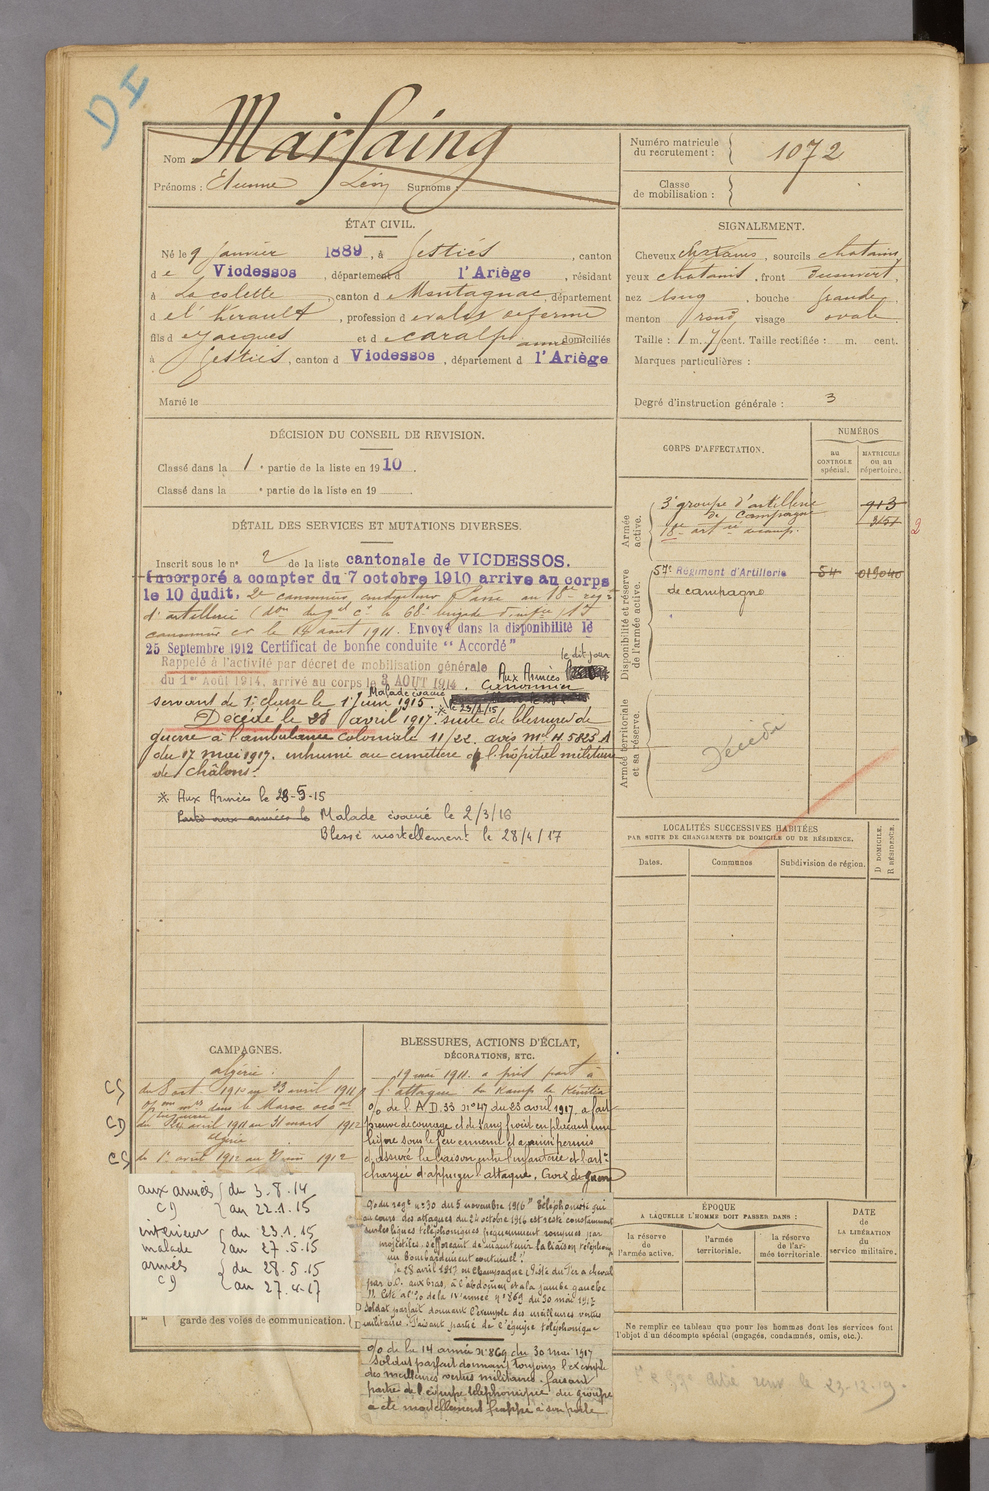 DI
Nom Marfaing
Prénoms : Etienne Léon Surnoms :
Numéro matricule du recrutement : 1072
Classe de mobilisation :
ÉTAT CIVIL.
Né le 9 Janvier 1889, à Gestiés, canton
de Vicdessos, département d l'Ariège, résidant
à La colette, canton d e Montagnac, département
d e l'Hérault, profession d e valet de ferme
fils d e Jacques et d e Caralp anne domiciliés
à Gestiés, canton d Vicdessos, département d l'Ariège
Marié le
SIGNALEMENT.
Cheveux chatains, sourcils chatains
yeux chatains, front découvert,
nez long, bouche grande,
menton rond visage ovale.
Taille : 1 m. 71 cent. Taille rectifiée : m. cent.
Marques particulières :
Degré d'instruction générale : 3
DÉCISION DU CONSEIL DE REVISION.
Classé dans la 1e partie de la liste en 1910.
Classé dans la e partie de la liste en 19
CORPS D'AFFECTATION.
NUMÉROS
au CONTROLE spécial.
MATRICULE ou au répertoire.
Armée active.
3e groupe d'artillerie
de Campagne
913
3151
2
Disponibilité et réserve de l'armée active.
57e Régiment d'Artillerie
de campagne
54
019040
Armée territoriale et sa réserve.
Décédé
DÉTAIL DES SERVICES ET MUTATIONS DIVERSES.
Inscrit sous le no 2 de la liste cantonale de VICDESSOS.
Incorporé a compter du 7 octobre 1910 arrive au corps
le 10 dudit, 2e canonnier conducteur Passé au 18e regt
d'artillerie
le 14 aout 1911. Envoyé dans la disponibilité le
25 Septembre 1912 Certificat de bonne conduite "Accordé"
Rappelé à l'activité par décret de mobilisation générale le dit jour
du 1er Août 1914, arrivé au corps le 3 AOUT 1914. Aux Armées
Canonnier
servant de 1e classe le 1e Juin 1915. Malade évacué le 23/1/15 *
Décédé le 28 avril 1917. suite de blessures de
guerre à l'ambulance coloniale 11/22. avis ml H 5823 A
du 17 mai 1917. inhumé au cimetière de l'hôpital militaire
de châlons.
* Aux Armées le 28-5-15
Parti aux armées le Malade évacué le 2/3/16
Blessé mortellement le 28/4/17
LOCALITÉS SUCCESSIVES HABITÉES
PAR SUITE DE CHANGEMENTS DE DOMICILE OU DE RÉSIDENCE.
Dates.
Communes
Subdivision de région.
D DOMICILE.
R RÉSIDENCE.
CAMPAGNES.
algérie.
CS du 8 oct 1910 au 23 avril 1911
dans le Maroc
CD du 24 avril 1911 au 31 mars 1912
algérie
CS du 1er avril 1912 au 1912
aux armées CD du 3.8.14 au 22.1.15
intérieur malade du 23.1.15 au 27.5.15
armées CD du 28.5.15 au 27.4.17
garde des voies de communication.
BLESSURES, ACTIONS D'ÉCLAT,
DÉCORATIONS, ETC.
19 mai 1911. a pris part à
l'attaque du Kamp de
o/o de l'A D.33 no 47 du 23 avril 1917. a fait
preuve de courage et de sang froid en plaçant une
ligne sous le feu ennemi et a ainsi permis
d'assuré la liaison entre l'infanterie et l'artie
chargée d'appuyer l'attaque. Croix de guerre
o/ du regt no 30 du 5 novembre 1916 "Téléphoniste qui
au cours des attaques du 24 octobre 1916 est resté constamment
sur les lignes téléphoniques fréquemment rompues par
projectiles, s'efforçant de maintenir la liaison téléphon.
un bombardement continuel.
le 28 avril 1917 en Champagne
par é.O. aux bras, à l'abdomen et à la jambe gauche
Cité à l'o/o de la IVe armée no 869 du 30 mai 1917
Soldat parfait donnant l'exemple des meilleures vertus
militaires. Faisant partie de l'équipe téléphonique
o/o de la 14 armée No 869 du 30 mai 1917
Soldat parfait donnant toujours l'exemple
des meilleures vertus militaires. faisant
partie de l'équipe téléphonique du groupe
a été mortellement frappé à son poste
ÉPOQUE
A LAQUELLE L'HOMME DOIT PASSER DANS :
la réserve de l'armée active.
l'armée territoriale.
la réserve de l'armée territoriale.
DATE de LA LIBÉRATION du service militaire.
Ne remplir ce tableau que pour les hommes dont les services font
l'objet d'un décompte spécial (engagés, condamnés, omis, etc.).
le 23-12-19.